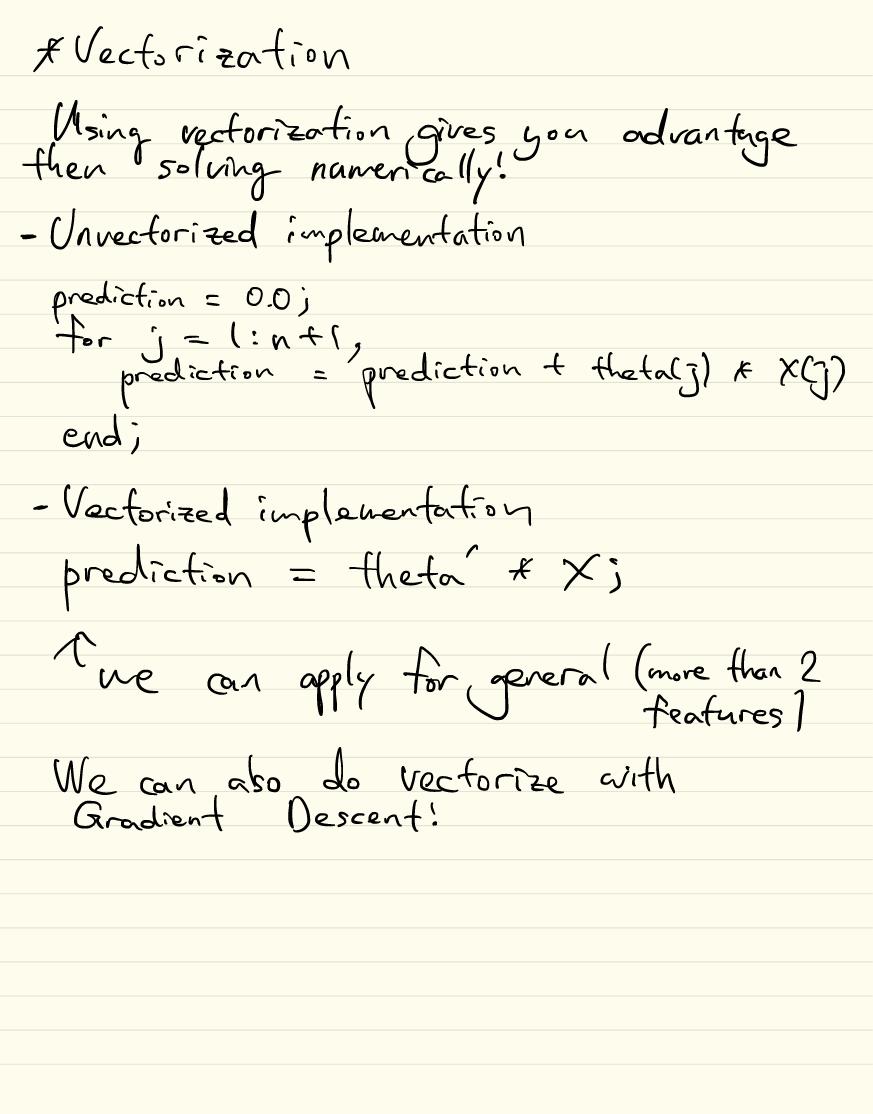 * Vectorization
Using vectorization gives you advantage
then solving numerically!
- Unvectorized implementation
prediction = 0.0;
for j = 1:n+1,
prediction = prediction + theta(j) * x(j)
end;
- Vectorized implementation
prediction = theta' * X;
↑ we can apply for general (more than 2
features)
We can also do vectorize with
Gradient Descent!